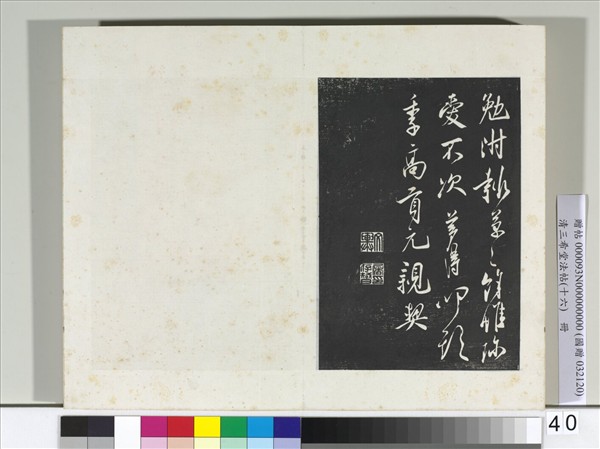 勉附報草草餘惟珍
愛不次 夢得叩頭
季高貢元親契
贈帖 000093N000000000 (國贈 032120)
清三希堂法帖(十六) 冊
40